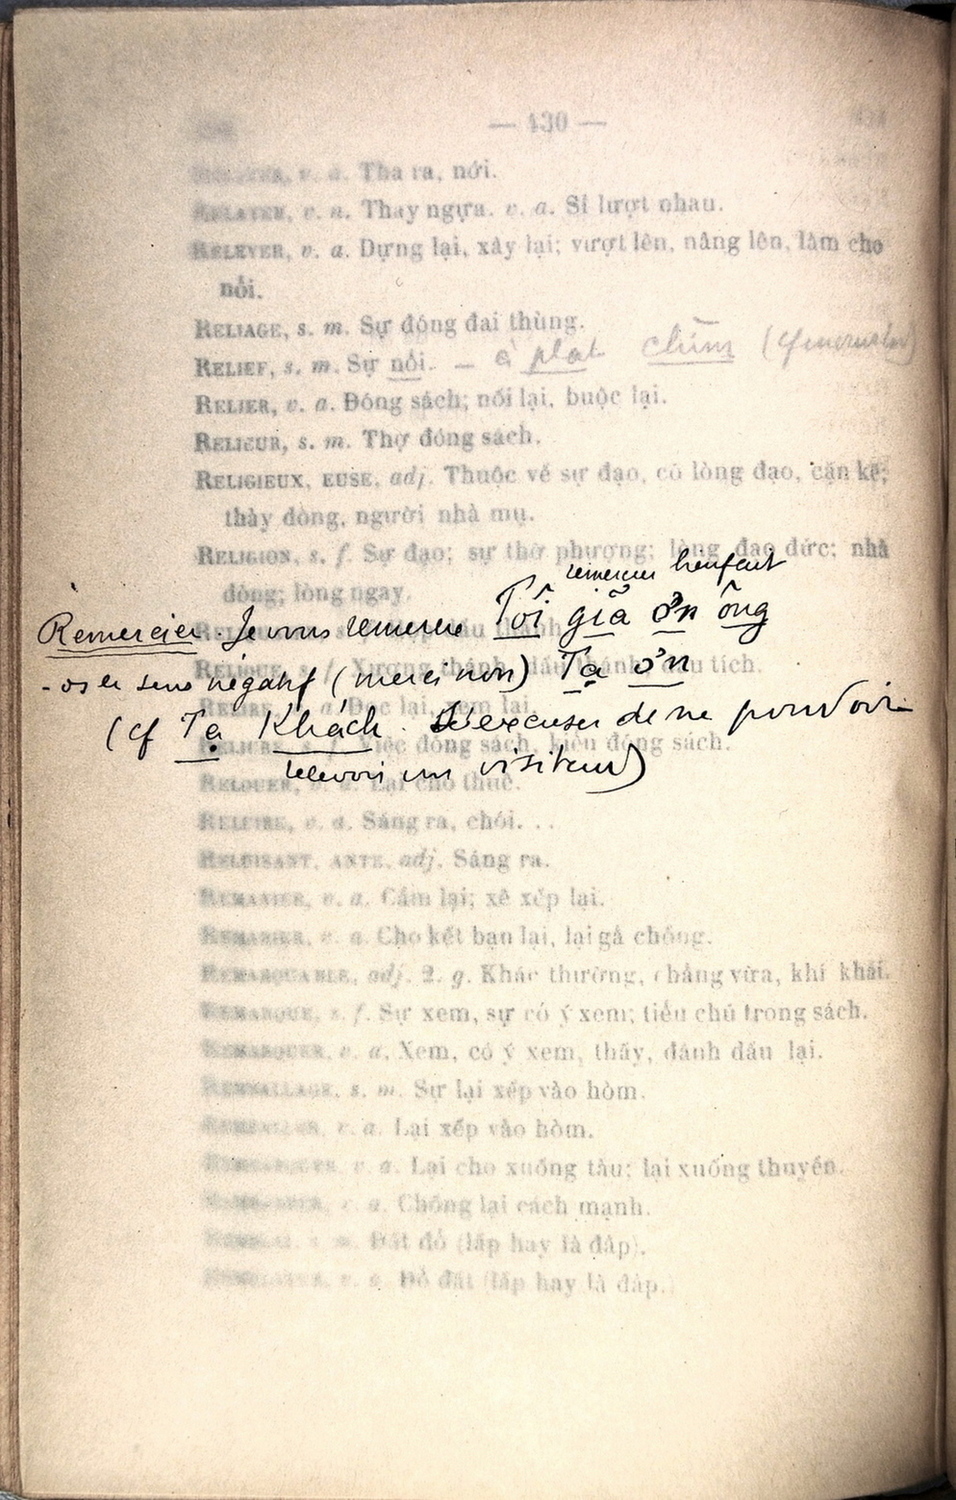 — 430 —
v. a. Tha ra, nới.
RELAYER, v. n. Thay ngựa. v. a. Sỉ lượt nhau.
RELEVER, v. a. Dựng lại, xây lại; vượt lên, nâng lên, làm cho
nổi.
RELIAGE, s. m. Sự đóng đai thùng.
RELIEF, s. m. Sự nổi. — à plat
RELIER, v. a. Đóng sách; nối lại, buộc lại.
RELIEUR, s. m. Thợ đóng sách.
RELIGIEUX, EUSE, adj. Thuộc về sự đạo, có lòng đạo, cặn kẽ;
thày dòng, người nhà mụ.
RELIGION, s. f. Sự đạo; sự thờ phượng; lòng đạo đức; nhà
dòng; lòng ngay.
remercier bienfait
Remercier. Je vous remercie Tôi giã ơn ông
RELIQUE, s. f. Xương thánh, dấu thánh, dấu tích.
sens négatif (merci non) Tạ ơn
RELIRE, v. a. Đọc lại, xem lại.
(cf Tạ Khách. S'excuser de ne pouvoir
RELIURE, s. f. Việc đóng sách, kiểu đóng sách.
recevoir un visiteur)
RELOUER, v. a. Lại cho thuê.
RELUIRE, v. a. Sáng ra, chói. . .
RELUISANT, ANTE, adj. Sáng ra.
REMANIER, v. a. Cầm lại; xê xếp lại.
REMARIER, v. a. Cho kết bạn lại, lại gả chồng.
REMARQUABLE, adj. 2. g. Khác thường, chẳng vừa, khí khái.
REMARQUE, s. f. Sự xem, sự có ý xem; tiểu chú trong sách.
REMARQUER, v. a. Xem, có ý xem, thấy, đánh dấu lại.
REMBALLAGE, s. m. Sự lại xếp vào hòm.
REMBALLER, v. a. Lại xếp vào hòm.
REMBARQUER, v. a. Lại cho xuống tàu; lại xuống thuyền.
v. a. Chống lại cách mạnh.
s. m. Đất đỏ (lấp hay là đắp).
v. a. Đổ đất (lấp hay là đắp.)